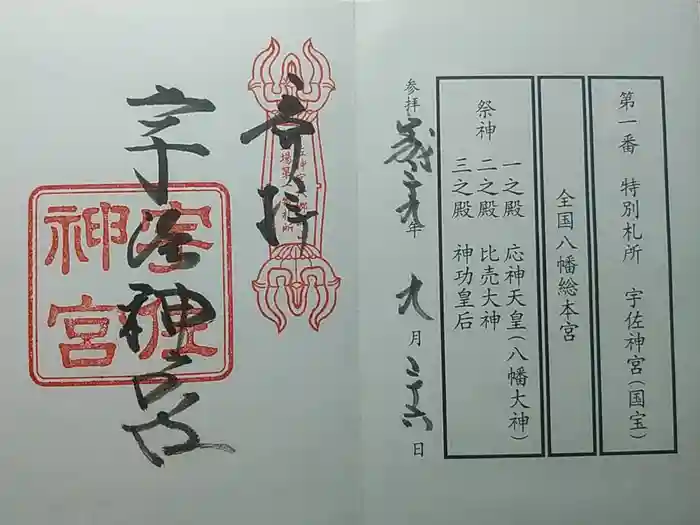 第一番 特別札所 宇佐神宮(国宝)
全国八幡総本宮
祭神
一之殿 応神天皇(八幡大神)
二之殿 比売大神
三之殿 神功皇后
参拝
二十九年 九月 二十六日
奉拝
宇佐神宮
宇佐
神宮